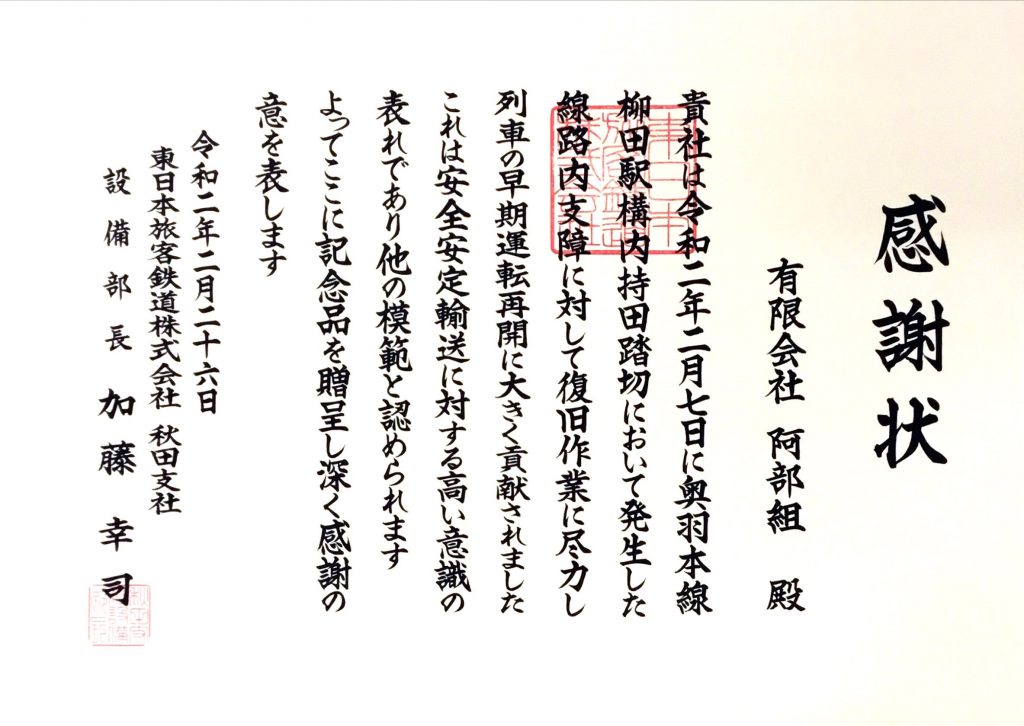 感謝状
有限会社 阿部組 殿
貴社は令和二年二月七日に奥羽本線
柳田駅構内持田踏切において発生した
線路内支障に対して復旧作業に尽力し
列車の早期運転再開に大きく貢献されました
これは安全安定輸送に対する高い意識の
表れであり他の模範と認められます
よってここに記念品を贈呈し深く感謝の
意を表します
令和二年二月二十六日
東日本旅客鉄道株式会社 秋田支社
設備部長 加藤幸司
東日本
旅客鉄道
株式会社